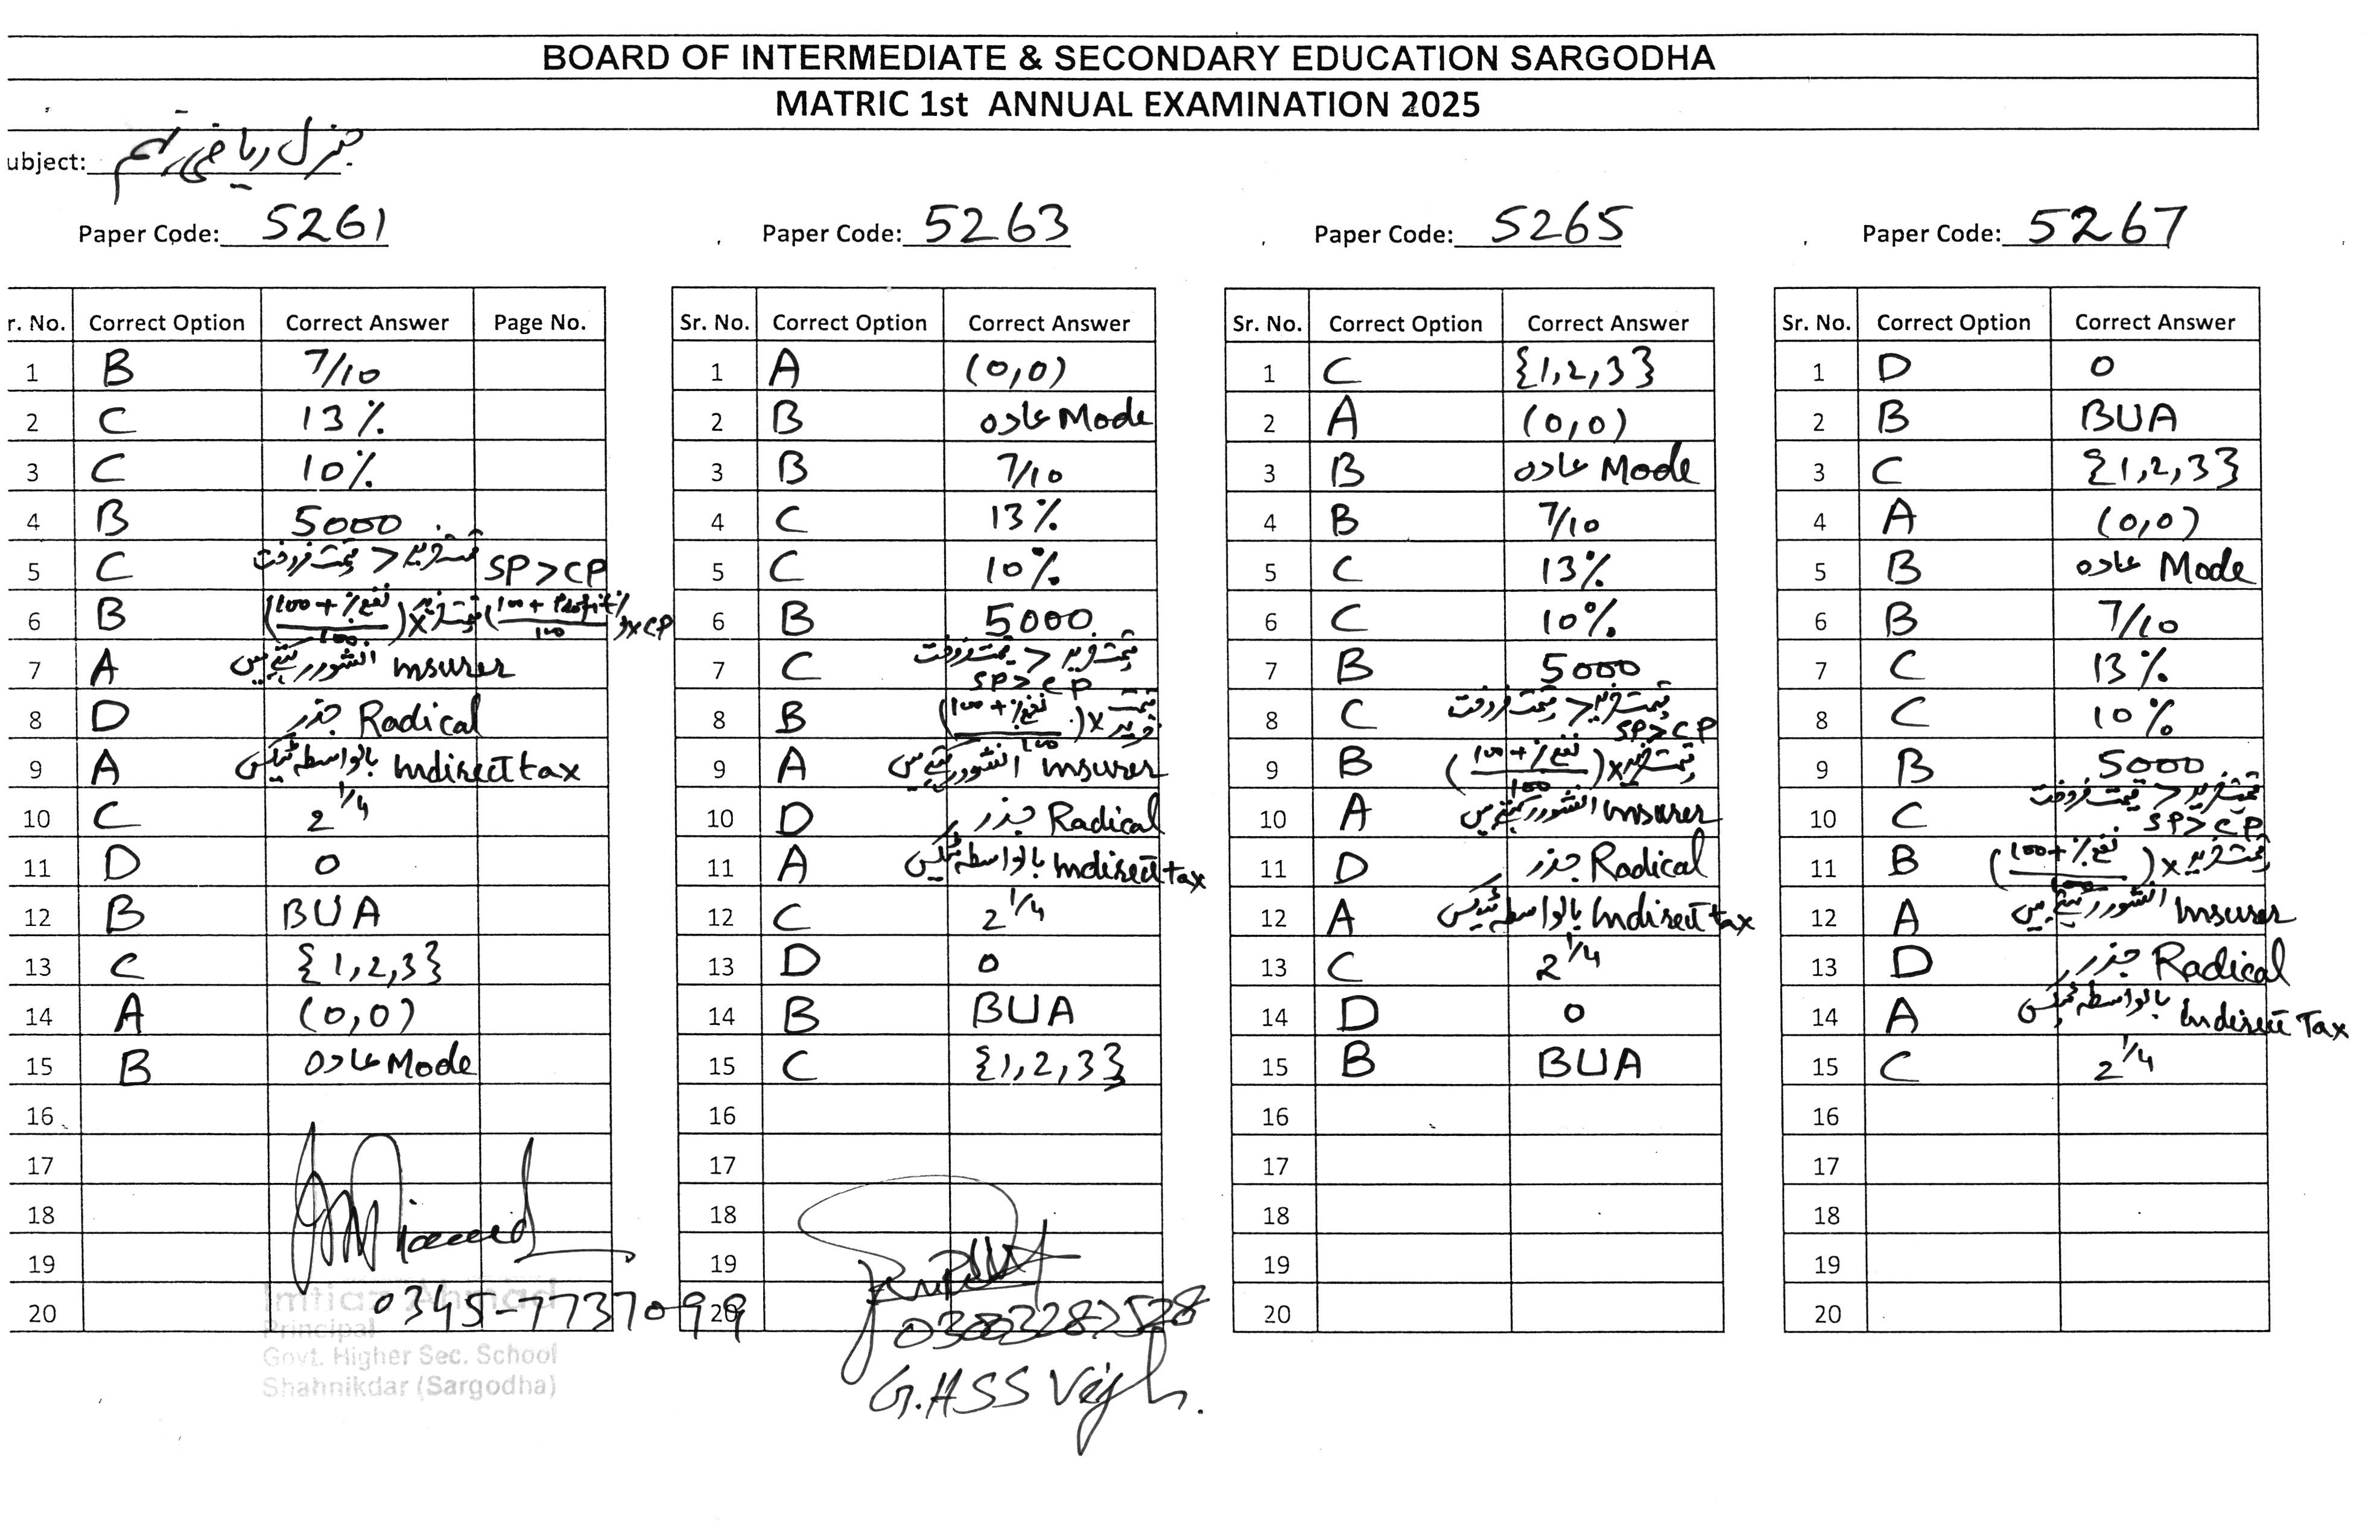 BOARD OF INTERMEDIATE & SECONDARY EDUCATION SARGODHA
MATRIC 1st ANNUAL EXAMINATION 2025
ubject: جنرل ریاضی
Paper Code: 5261
r. No. Correct Option Correct Answer Page No.
1 B 7/10
2 C 13%
3 C 10%
4 B 5000
5 C قیمت خرید > قیمت فروخت SP>CP
6 B (100+%نفع/100)×قیمت خرید (100+Profit%/100)×CP
7 A انشورر Insurer
8 D جذر Radical
9 A بالواسطہ ٹیکس Indirect tax
10 C 2^1/4
11 D 0
12 B BUA
13 C {1,2,3}
14 A (0,0)
15 B عادہ Mode
16
17
18
19
20
Imtiaz Ahmad
Principal
Govt. Higher Sec. School
Shahnikdar (Sargodha)
0345-7737099
Paper Code: 5263
Sr. No. Correct Option Correct Answer
1 A (0,0)
2 B عادہ Mode
3 B 7/10
4 C 13%
5 C 10%
6 B 5000
7 C قیمت خرید > قیمت فروخت SP>CP
8 B (100+%نفع/100)×قیمت خرید
9 A انشورر Insurer
10 D جذر Radical
11 A بالواسطہ ٹیکس Indirect tax
12 C 2^1/4
13 D 0
14 B BUA
15 C {1,2,3}
16
17
18
19
20
G.HSS
Paper Code: 5265
Sr. No. Correct Option Correct Answer
1 C {1,2,3}
2 A (0,0)
3 B عادہ Mode
4 B 7/10
5 C 13%
6 C 10%
7 B 5000
8 C قیمت خرید > قیمت فروخت SP>CP
9 B (100+%نفع/100)×قیمت خرید
10 A انشورر Insurer
11 D جذر Radical
12 A بالواسطہ ٹیکس Indirect tax
13 C 2^1/4
14 D 0
15 B BUA
16
17
18
19
20
Paper Code: 5267
Sr. No. Correct Option Correct Answer
1 D 0
2 B BUA
3 C {1,2,3}
4 A (0,0)
5 B عادہ Mode
6 B 7/10
7 C 13%
8 C 10%
9 B 5000
10 C قیمت خرید > قیمت فروخت SP>CP
11 B (100+%نفع/100)×قیمت خرید
12 A انشورر Insurer
13 D جذر Radical
14 A بالواسطہ ٹیکس Indirect Tax
15 C 2^1/4
16
17
18
19
20